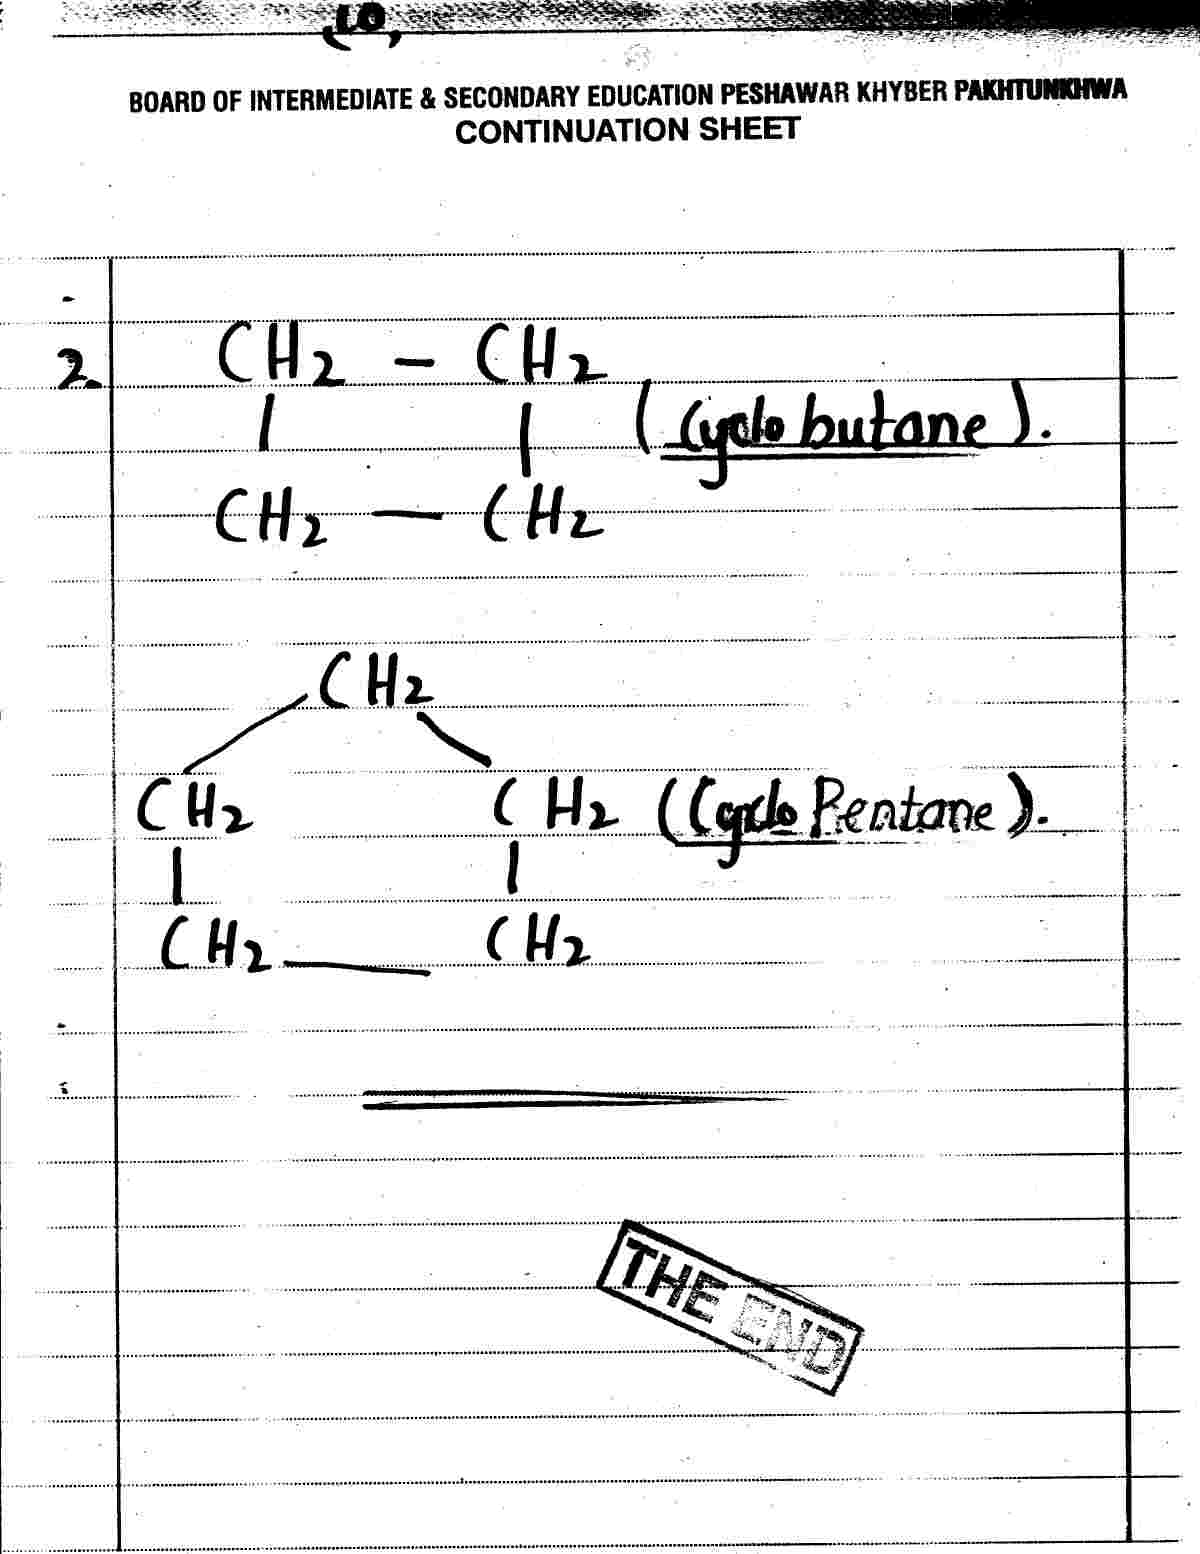 10,
BOARD OF INTERMEDIATE & SECONDARY EDUCATION PESHAWAR KHYBER PAKHTUNKHWA
CONTINUATION SHEET
2. CH2 - CH2
| | (Cyclo butane).
CH2 — CH2
CH2
CH2 CH2 (Cyclo Pentane).
| |
CH2 — CH2
THE END